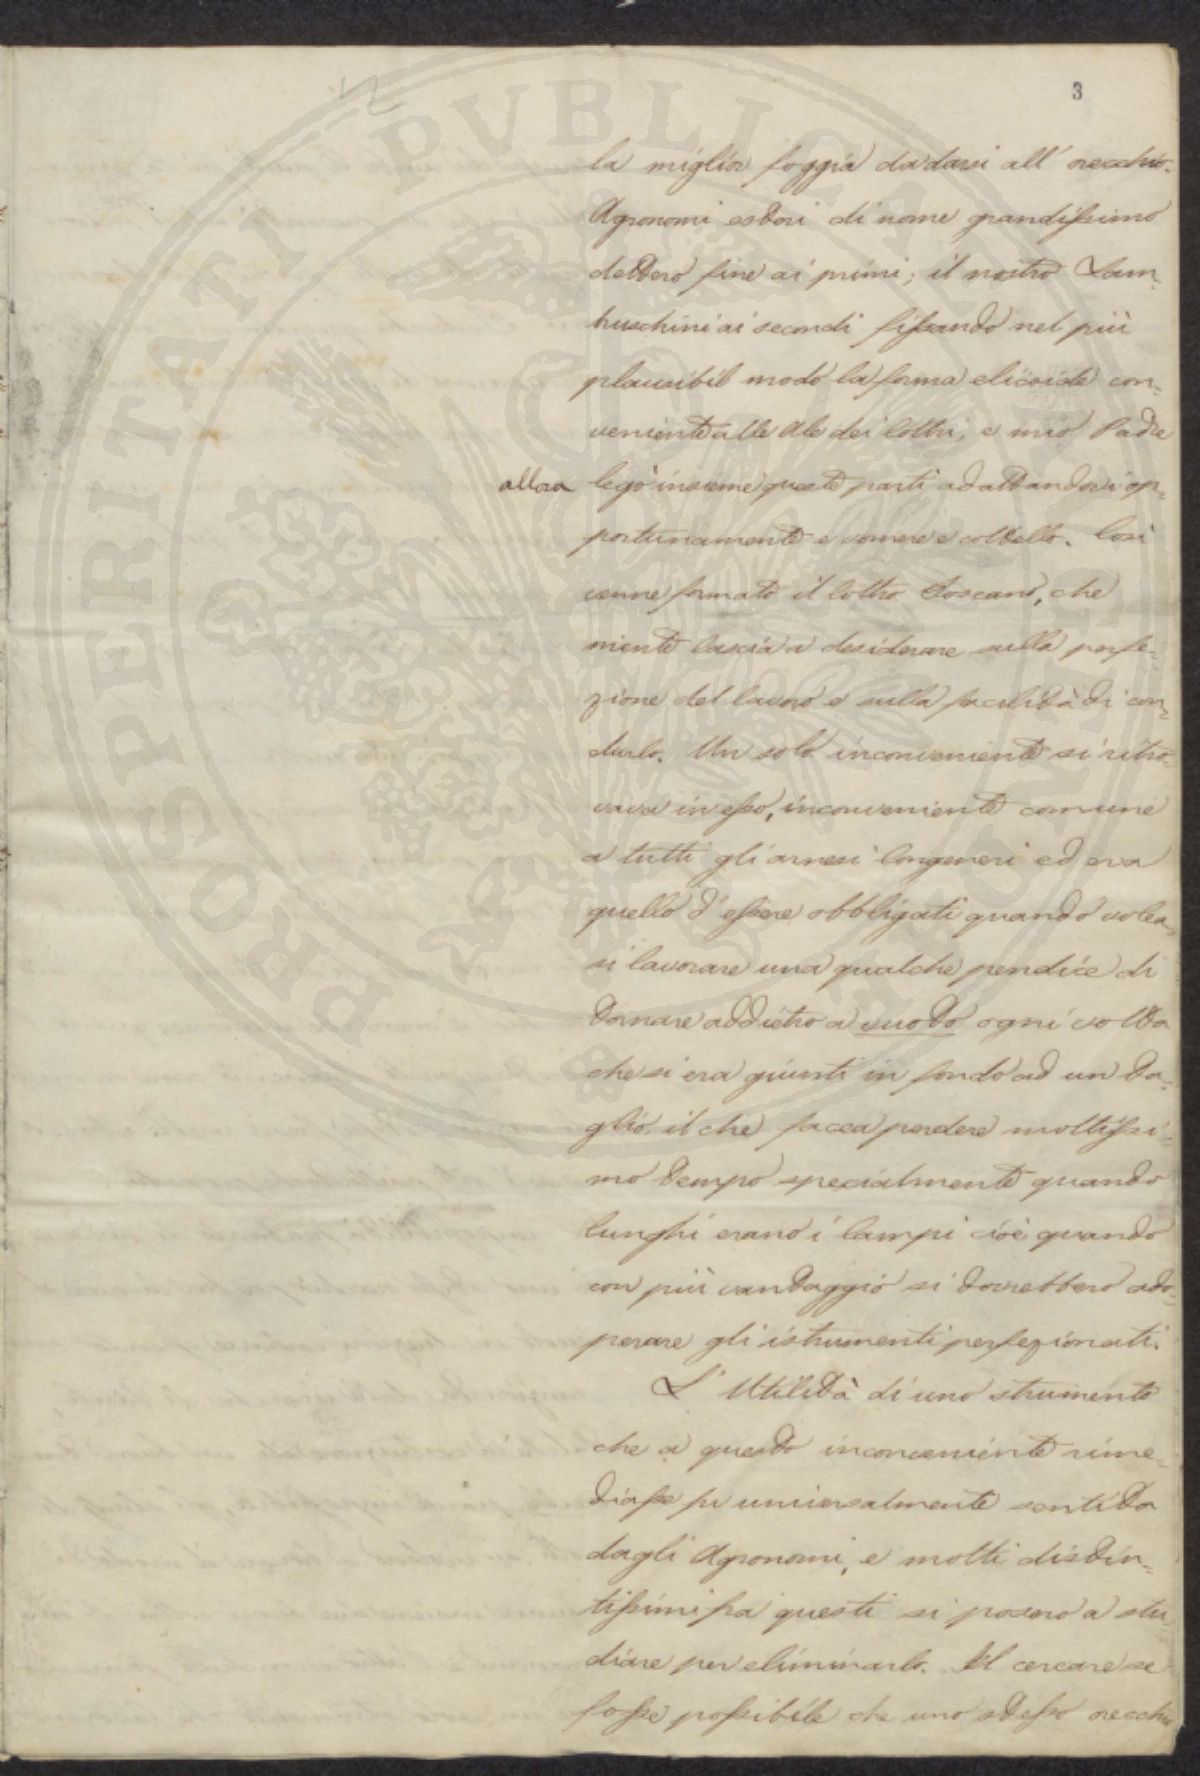 3
la miglior foggia da darsi all' orecchio.
Agronomi esteri di nome grandissimo
dettero fine ai primi; il nostro Lam=
bruschini ai secondi fissando nel più
plausibil modo la forma elicoide con=
veniente alle Ale dei Coltri, e mio Padre
allora legò insieme queste parti adattandovi op=
portunamente e vomere e coltello. Così
venne formato il Coltro Toscano, che
niente lascia a desiderare sulla perfe=
zione del lavoro e sulla facilità di con=
durlo. Un solo inconveniente si ritro=
vava in esso, inconveniente comune
a tutti gli arnesi Congeneri ed era
quello d' essere obbligati quando volea
si lavorare una qualche pendice di
tornare addietro a vuoto ogni volta
che si era giunti in fondo ad un ta=
glio. il che facea perdere moltissi=
mo tempo specialmente quando
lunghi erano i Campi cioè quando
con più vantaggio si dovrebbero ado=
perare gli istrumenti perfezionati.
L' Utilità di uno strumento
che a questo inconveniente rime=
diasse fu universalmente sentita
dagli Agronomi, e molti distin=
tissimi fra questi si posero a stu
diare per eliminarlo. Il cercare se
fosse possibile che uno stesso orecchio
PROSPERITATI PVBLICAE